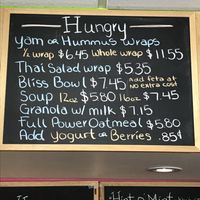 Hungry
Yam or Hummus Wraps
½ wrap $6.45 Whole wrap $11.55
Thai Salad wrap $5.35
Bliss Bowl $7.45 Add feta at NO extra cost
Soup 12oz $5.80 16oz $7.45
Granola w/ milk $7.15
Full Power Oatmeal $5.80
Add yogurt or Berries .85¢